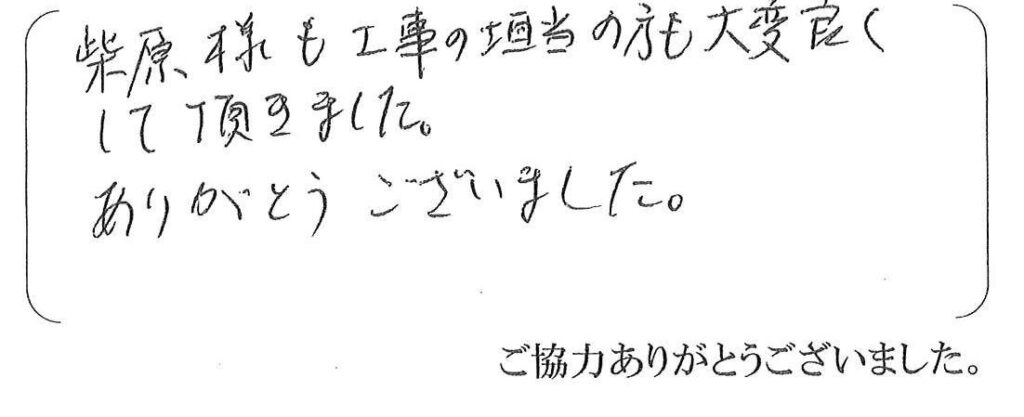 柴原様も工事の担当の方も大変良く
して頂きました。
ありがとうございました。
ご協力ありがとうございました。